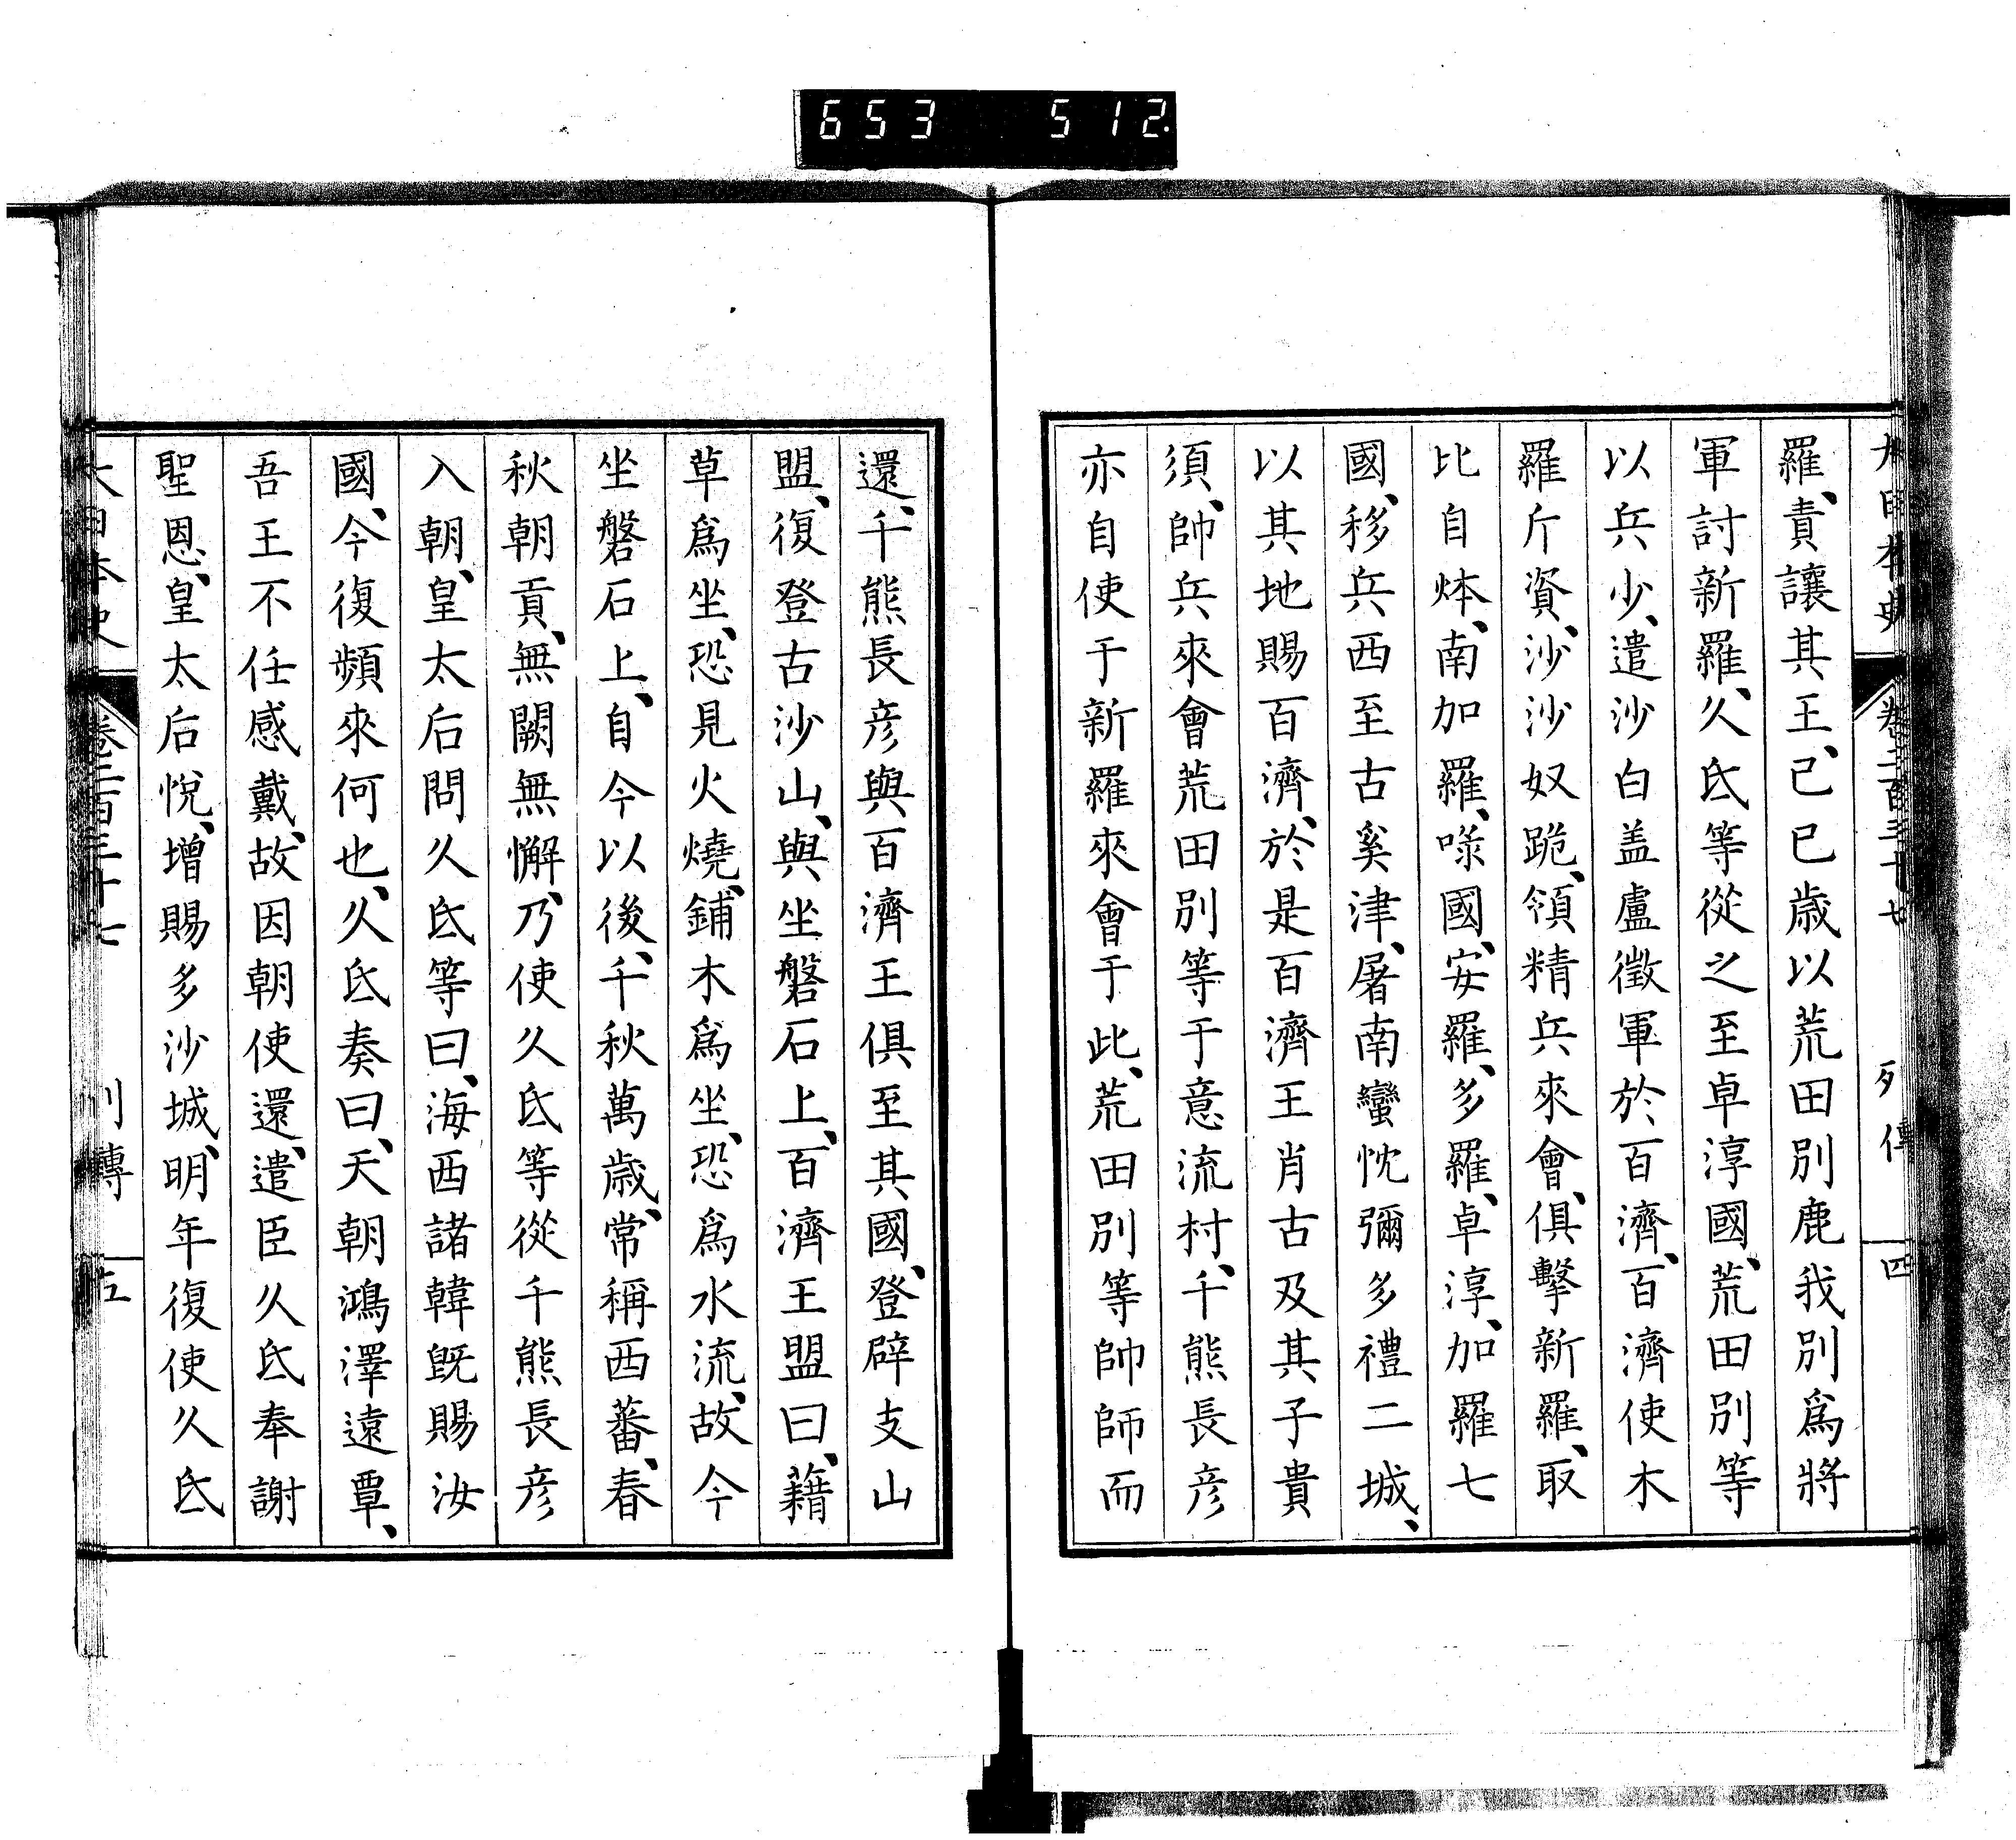 653 512
大日本史 卷二百三十七 列傳 四
羅、責讓其王、己巳歳以荒田別鹿我別爲將
軍討新羅、久氐等從之至卓淳國、荒田別等
以兵少、遣沙白盖盧徵軍於百濟、百濟使木
羅斤資、沙沙奴跪、領精兵來會、俱擊新羅、取
比自㶱、南加羅、㖨國、安羅、多羅、卓淳、加羅七
國、移兵西至古奚津、屠南蠻忱彌多禮二城、
以其地賜百濟、於是百濟王肖古及其子貴
須、帥兵來會荒田別等于意流村、千熊長彦
亦自使于新羅來會于此、荒田別等帥師而
還、千熊長彦與百濟王俱至其國、登辟支山
盟、復登古沙山、與坐磐石上、百濟王盟曰、藉
草爲坐、恐見火燒、鋪木爲坐、恐爲水流、故今
坐磐石上、自今以後、千秋萬歳、常稱西蕃、春
秋朝貢、無闕無懈、乃使久氐等從千熊長彦
入朝、皇太后問久氐等曰、海西諸韓既賜汝
國、今復頻來何也、久氐奏曰、天朝鴻澤遠覃、
吾王不任感戴、故因朝使還、遣臣久氐奉謝
聖恩、皇太后悅、增賜多沙城、明年復使久氐
大日本史 卷二百三十七 列傳 五